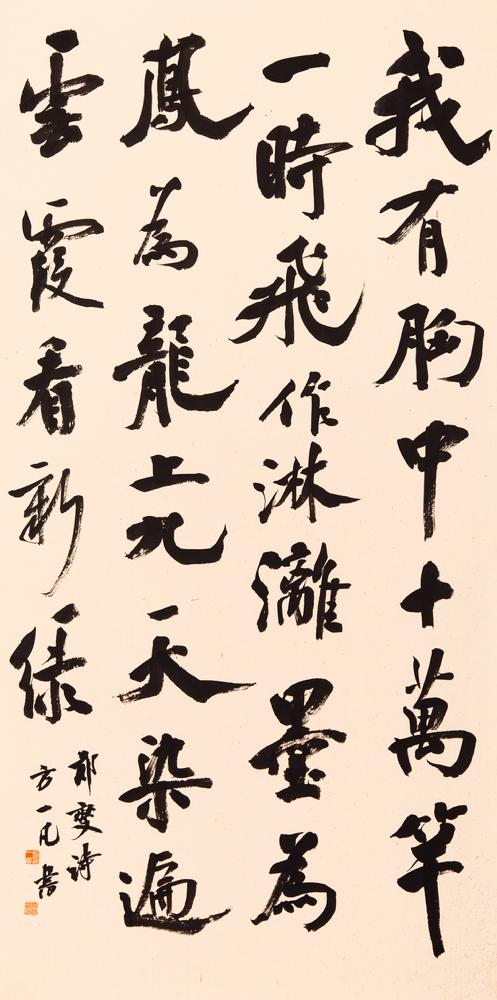 我有胸中十萬竿
一時飛作淋灕墨為
鳳為龍上九天染遍
雲霞看新綠
郑燮诗
方一凡書